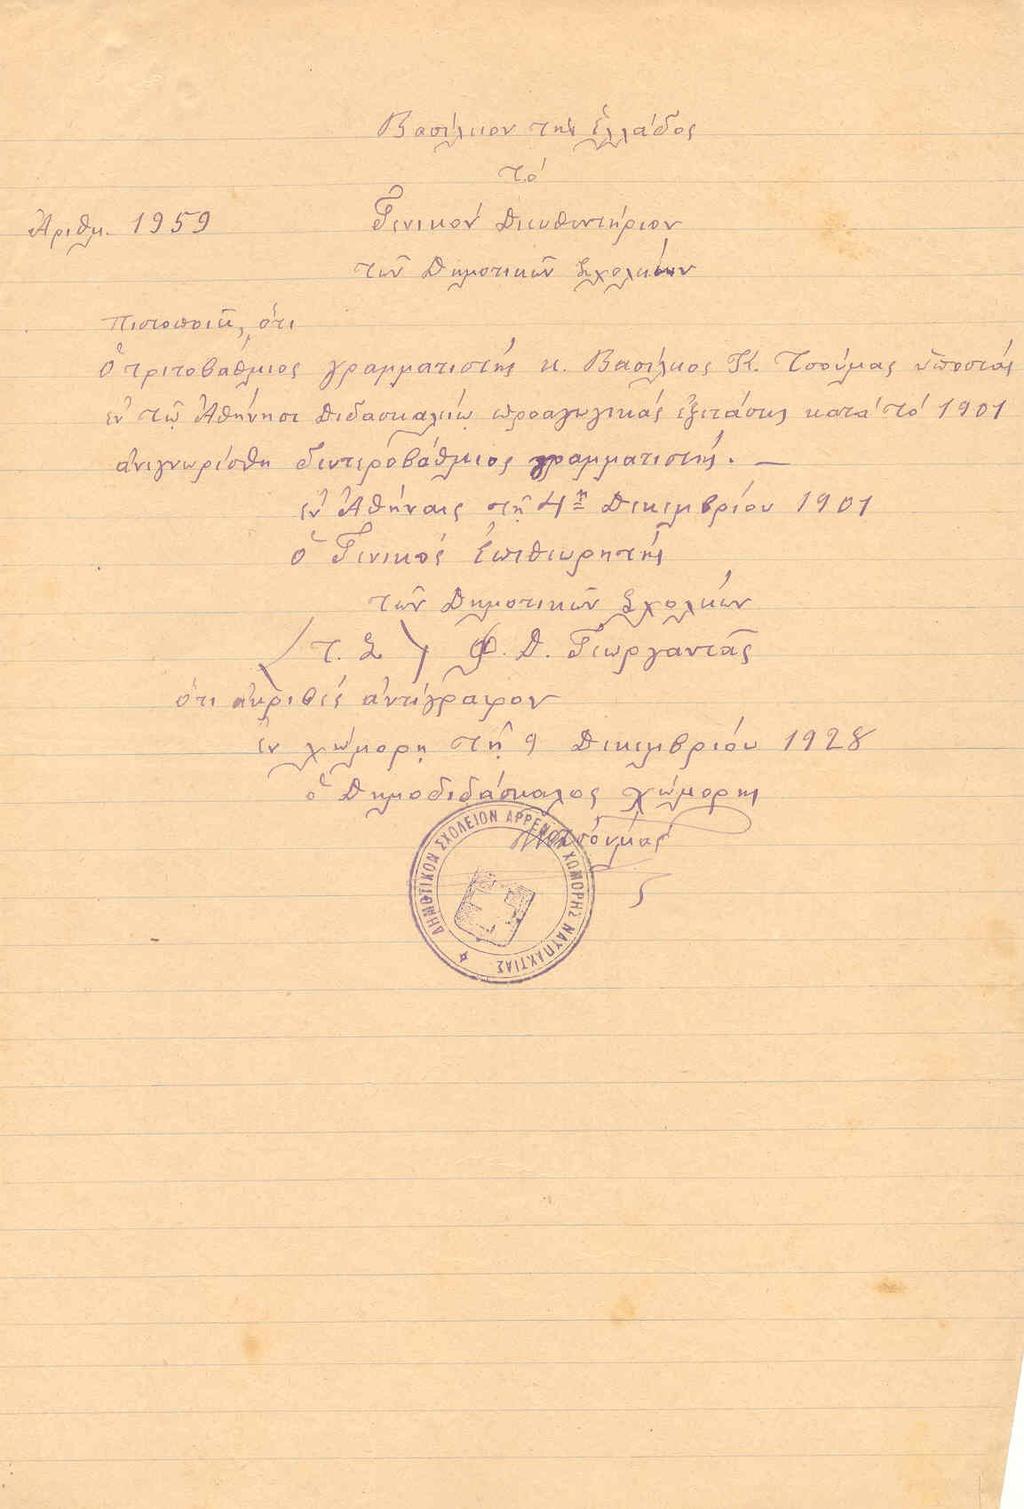 Βασίλειον της Ἑλλάδος
Τό
Ἀριθμ. 1959 Γενικόν Διευθυντήριον
τῶν Δημοτικῶν Σχολείων
Πιστοποιεῖ, ὅτι
Ὁ τριτοβάθμιος γραμματιστής κ. Βασίλειος Κ. Τσούμας ὑποστάς
ἐν τῷ Ἀθήνησι Διδασκαλείῳ προαγωγικάς ἐξετάσεις κατά τό 1901
ἀνεγνωρίσθη δευτεροβάθμιος γραμματιστής. —
ἐν Ἀθήναις τῇ 4ῃ Δεκεμβρίου 1901
ὁ Γενικός Ἐπιθεωρητής
τῶν Δημοτικῶν Σχολείων
(Τ. Σ) Φ. Δ. Γεωργαντᾶς
ὅτι ἀκριβές ἀντίγραφον
ἐν χώμορῃ τῇ 9 Δεκεμβρίου 1928
ὁ Δημοδιδάσκαλος χώμορης
Τσούμας
ΔΗΜΟΤΙΚΟΝ ΣΧΟΛΕΙΟΝ ΑΡΡΕΝΩΝ ΧΩΜΟΡΗΣ ΝΑΥΠΑΚΤΙΑΣ